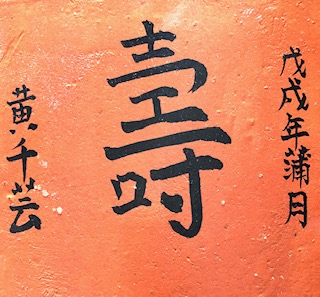 戊戌年蒲月
壽
黄千芸